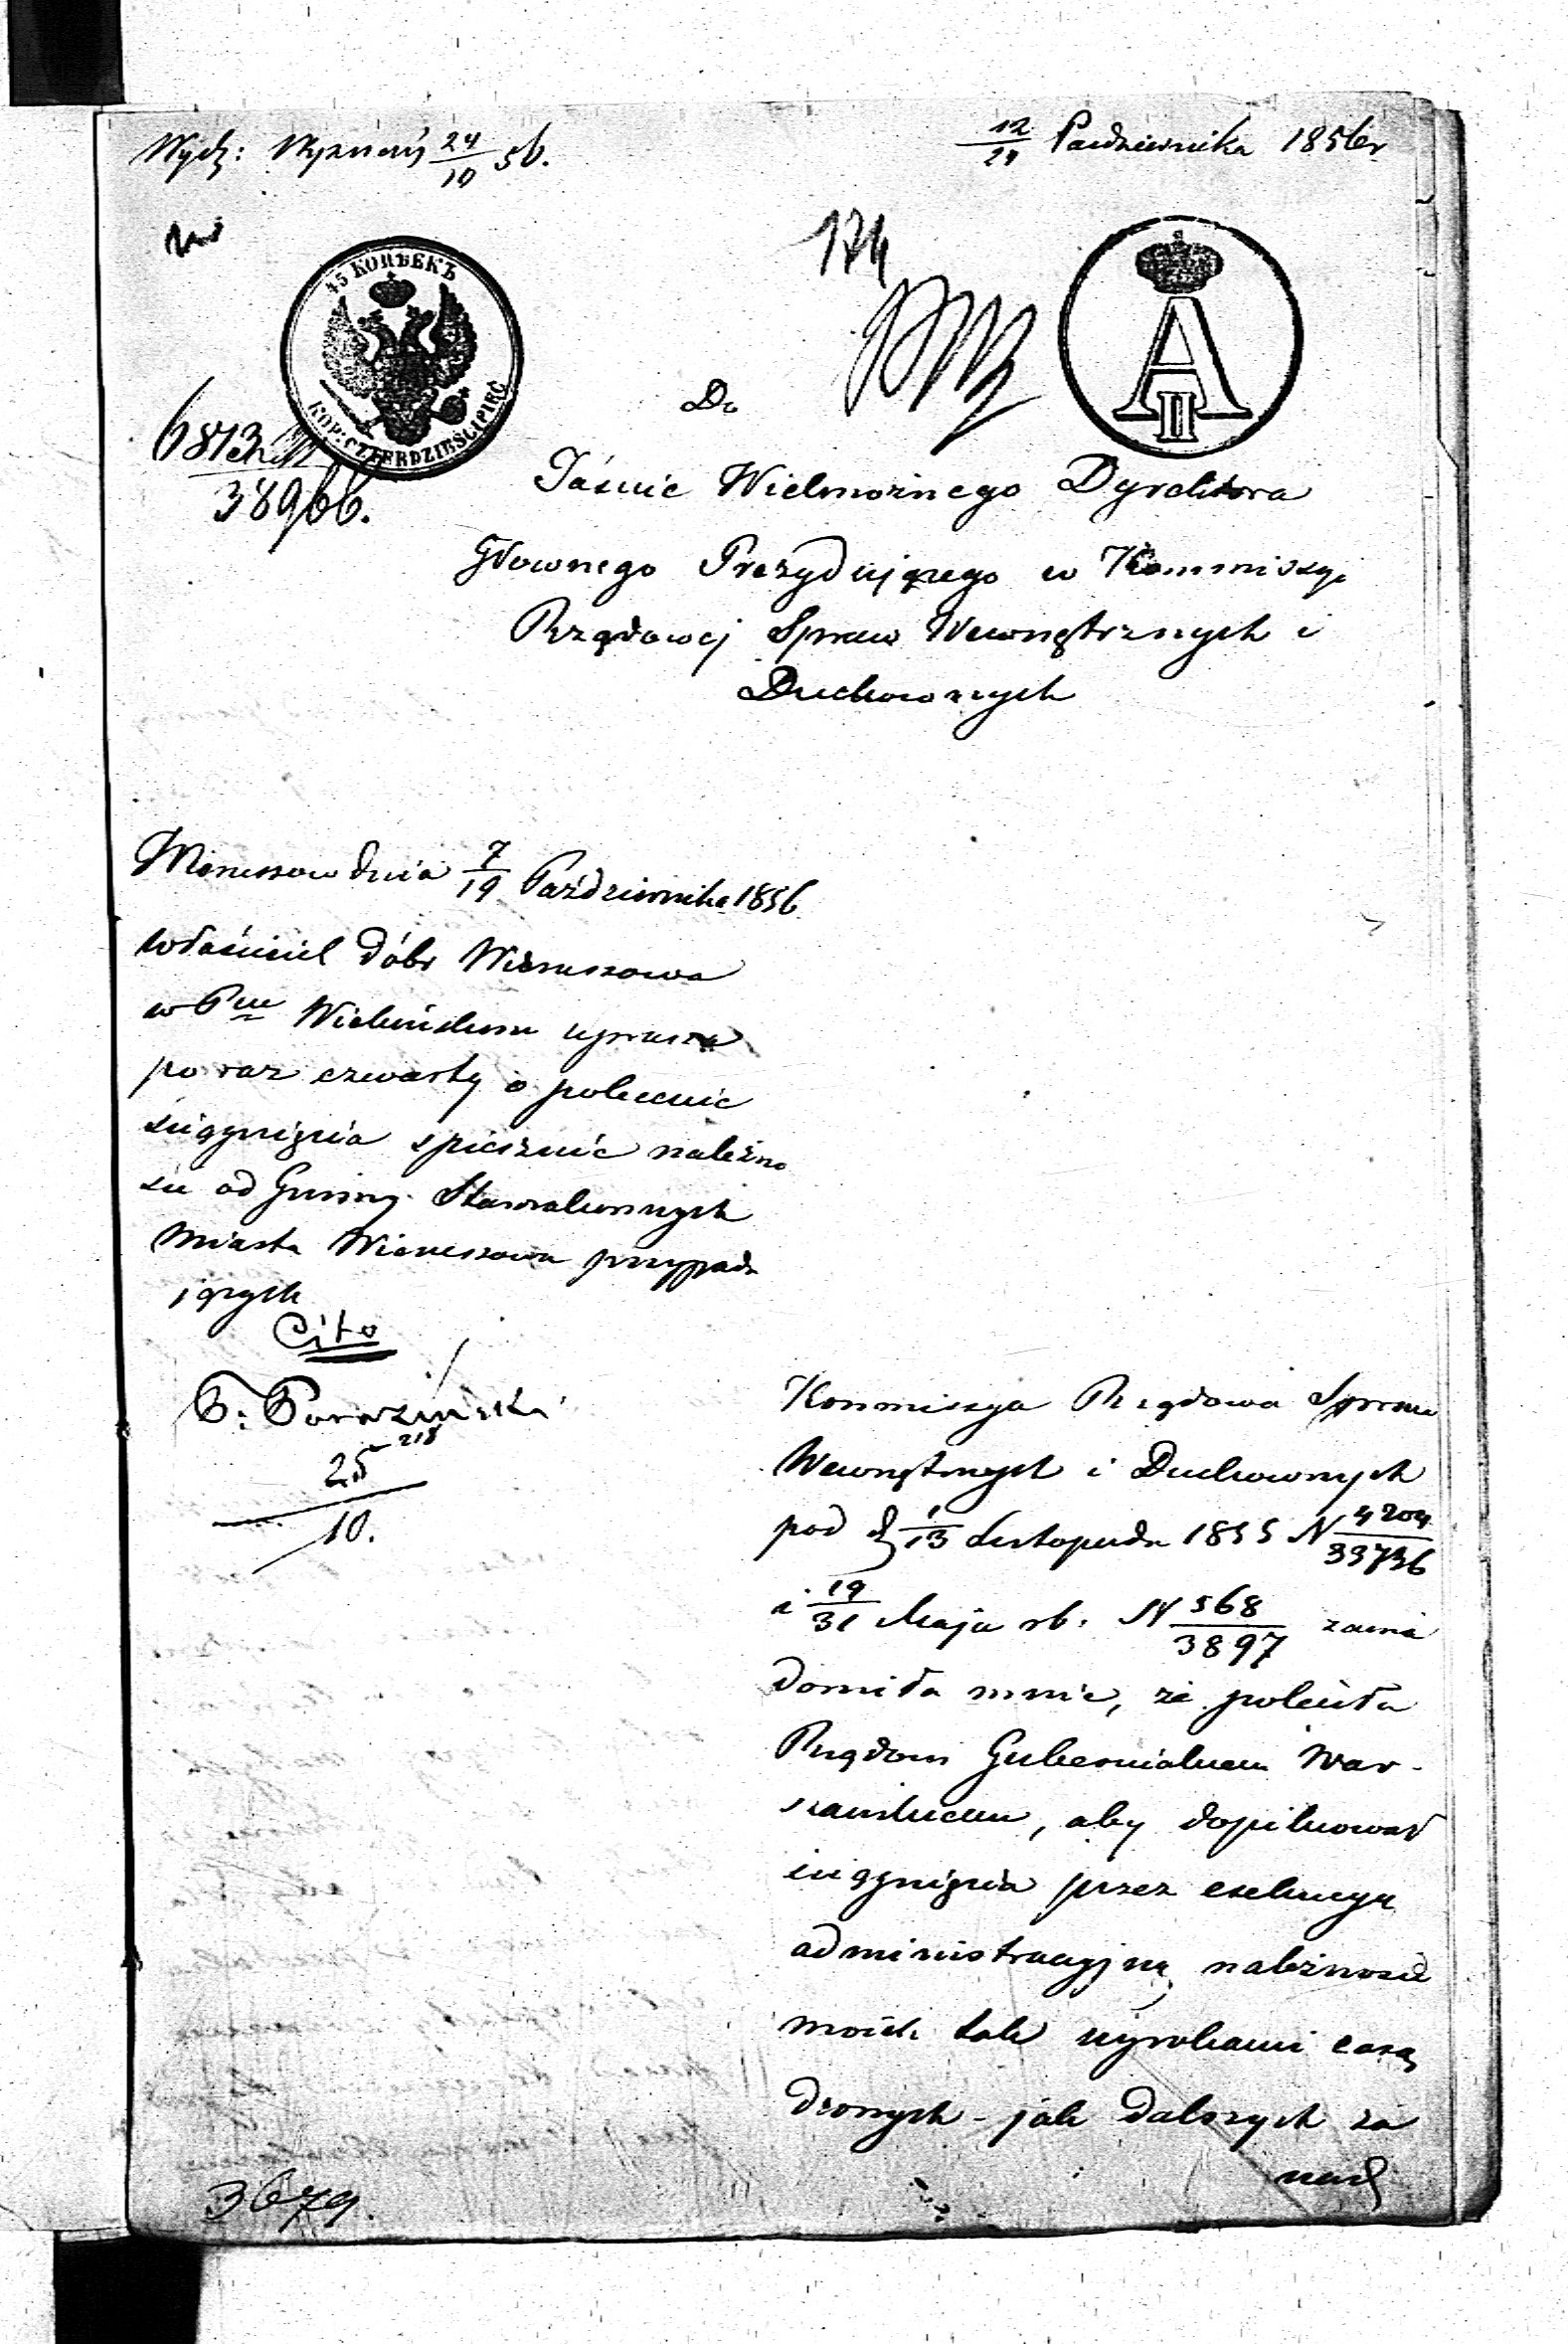 Wydz: Wyznań 24/10 56.
12/24 Października 1856 r
174
45 КОПѢЕКЪ
KOP: CZTERDZIESCI PIĘC
A II
6873
38966.
Do
Jaśnie Wielmożnego Dyrektora
Głownego Prezydującego w Kommissyi
Rządowej Spraw Wewnętrznych i
Duchownych
Wieruszow dnia 7/19 Października 1856
właściciel dóbr Wieruszowa
w Pcie Wieluńskim uprasza
po raz czwarty o polecenie
ściągnięcia spiesznie należno
ści od Gminy Starozakonnych
Miasta Wieruszowa przypada
jących
Cito
218
25
10.
Kommissya Rządowa Spraw
Wewnętrznych i Duchownych
pod d 1/13 Listopada 1855 N 4204/33736
i 19/31 Maja rb. N 568/3897 zawia
domiła mnie, że poleciła
Rządowi Gubernialnemu War-
szawskiemu, aby dopilnował
ściągnięcia przez exekucyą
administracyjną należności
moich tak wyrokami zasą
dzonych - jak dalszych za
3679.